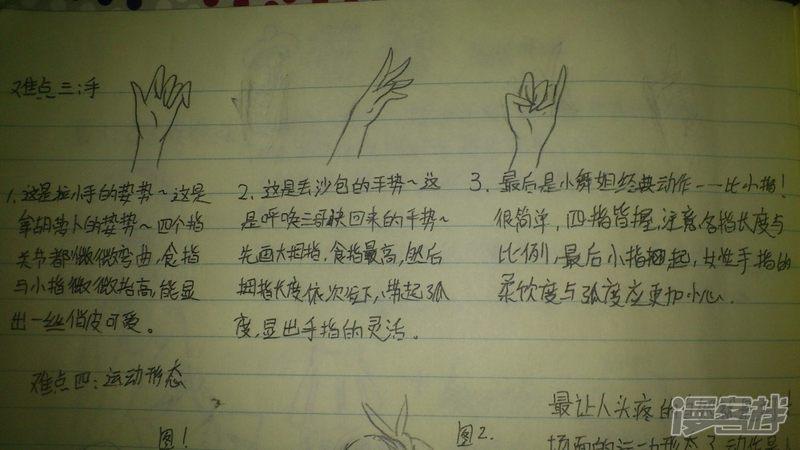 难点三:手
1.这是拉小手的姿势~这是
拿胡萝卜的姿势~四个指
关节都微微弯曲,食指
与小指微微抬高,能显
出一丝俏皮可爱。
2.这是丢沙包的手势~这
是呼唤三哥快回来的手势~
先画大拇指,食指最高,然后
拇指长度依次往下,带起弧
度,显出手指的灵活。
3.最后是小舞姐经典动作——比小指!
很简单,四指皆握,注意各指长度与
比例,最后小指翘起,女性手指的
柔软度与弧度应更加小心.
难点四:运动形态
图1
图2.
最让人头疼的
漫客栈